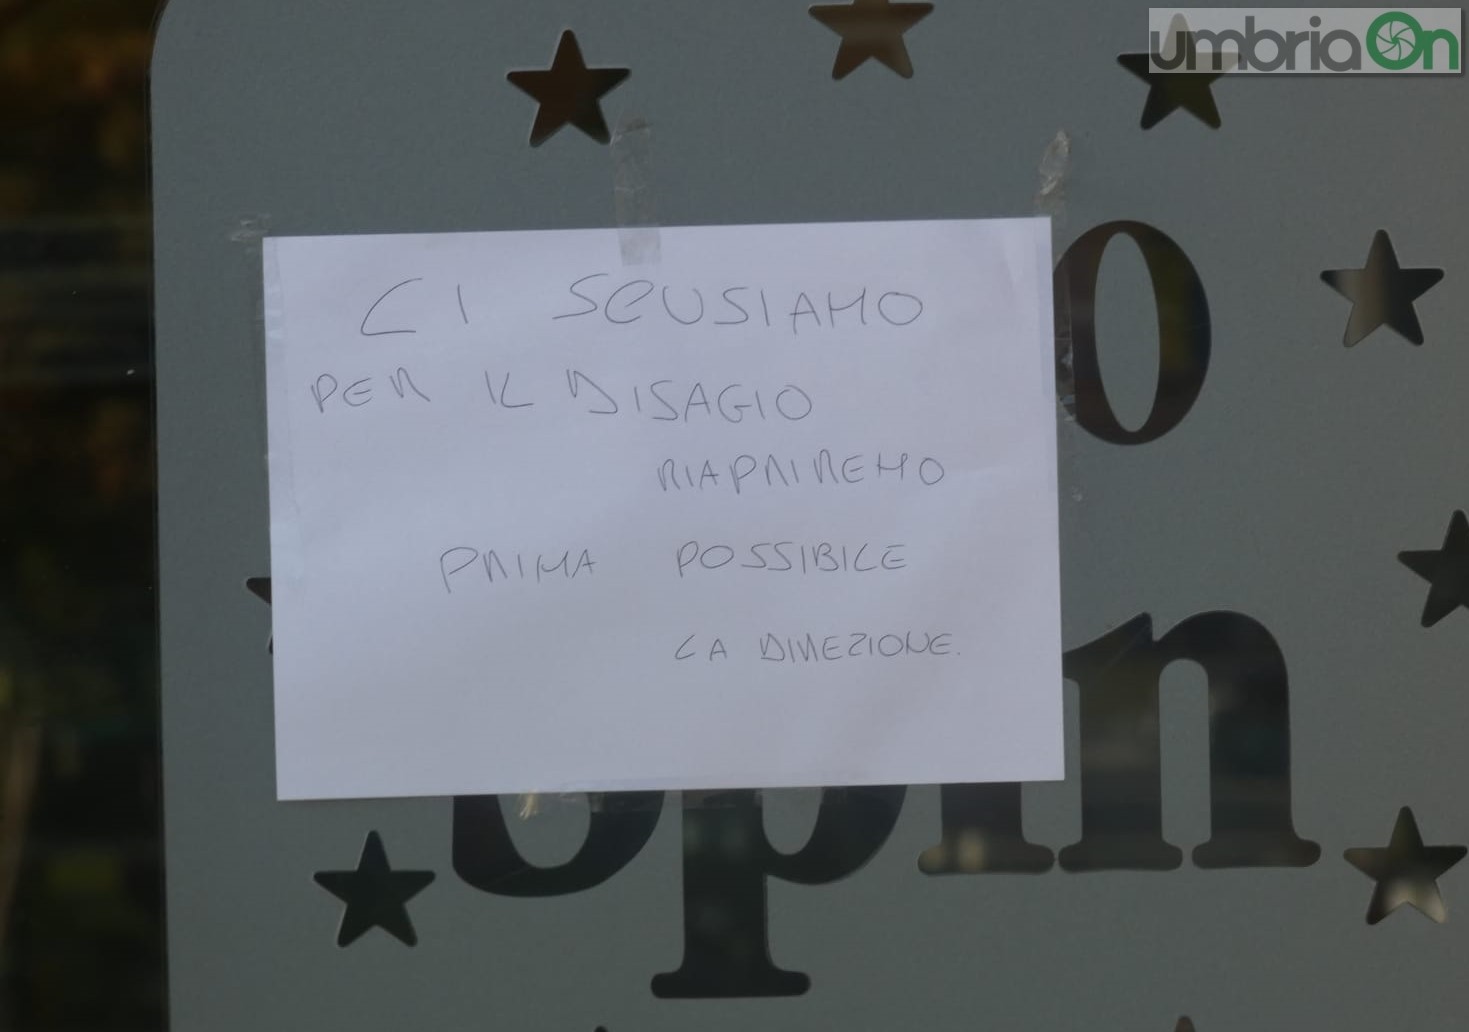 umbriaOn
CI SCUSIAMO
PER IL DISAGIO
RIAPRIREMO
PRIMA POSSIBILE
LA DIREZIONE.